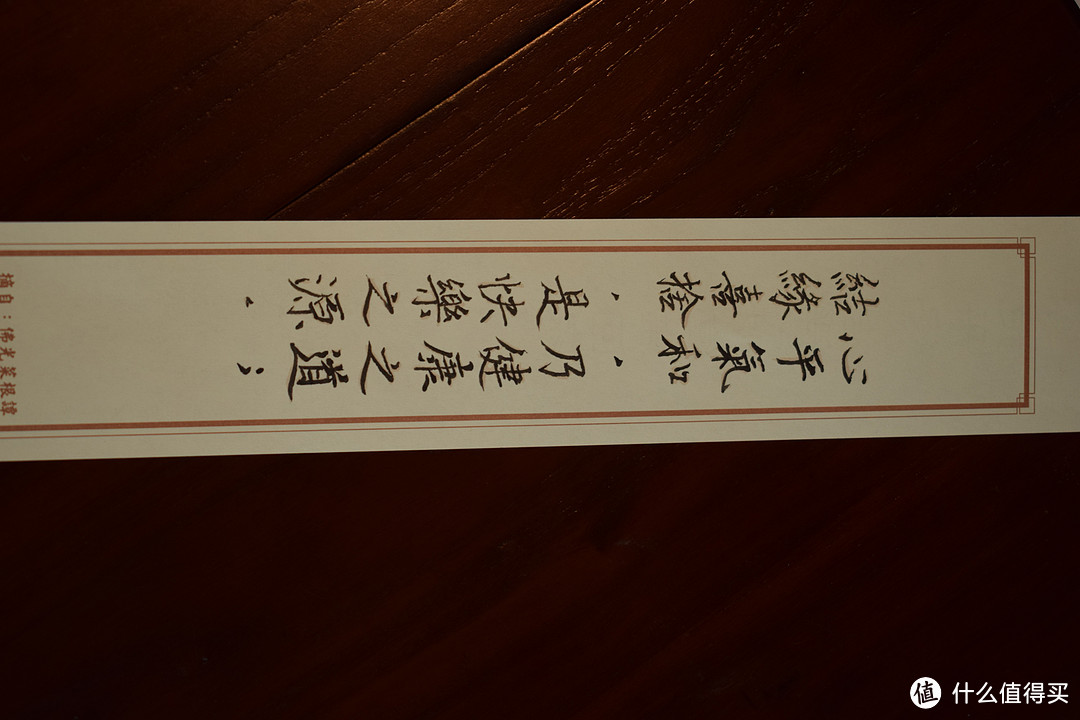 心平氣和，乃健康之道；
結緣喜捨，是快樂之源。
摘自：佛光菜根譚
值 什么值得买